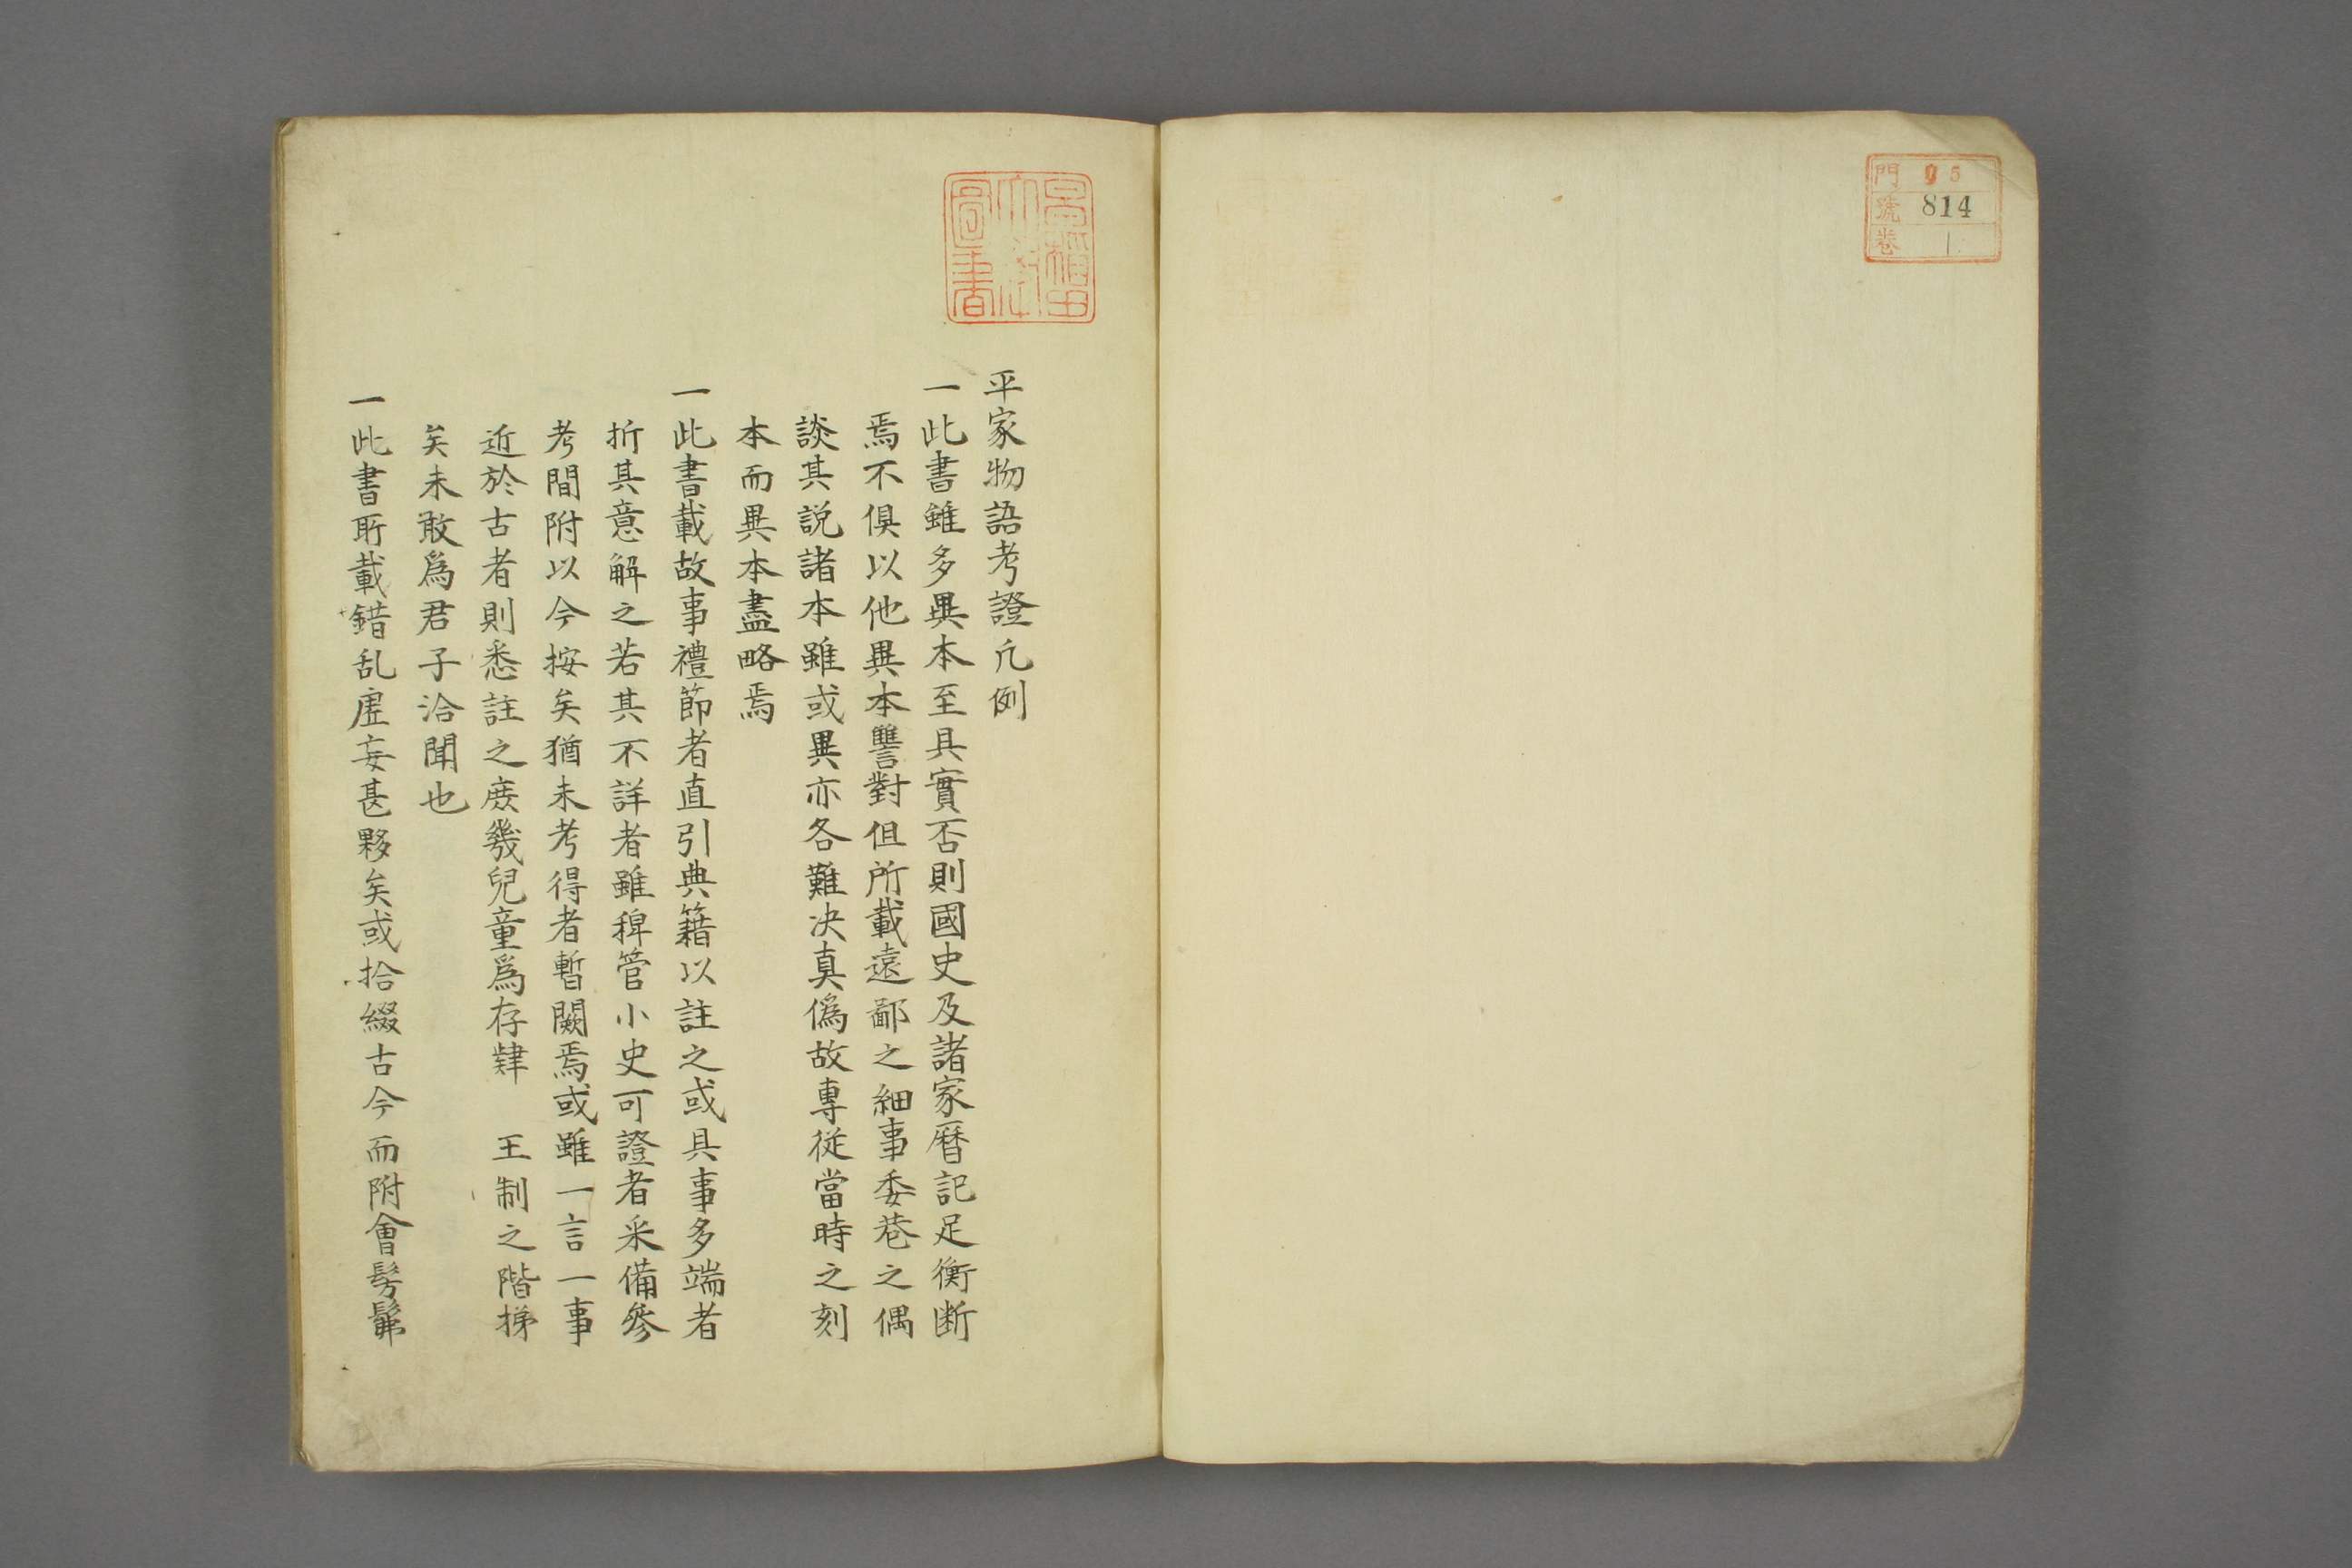 門 95
號 814
卷 1
平家物語考證凢例
一此書雖多異本至具實否則國史及諸家曆記足衡断
焉不俱以他異本讐對但所載遠鄙之細事委巷之偶
談其説諸本雖或異亦各難决真僞故專從當時之刻
本而異本盡略焉
一此書載故事禮節者直引典籍以註之或具事多端者
折其意解之若其不詳者雖稗管小史可證者采備參
考間附以今按矣猶未考得者暫闕焉或雖一言一事
近於古者則悉註之庻幾兒童爲存肄　王制之階梯
矣未敢爲君子洽聞也
一此書所載錯乱虚妄甚夥矣或拾綴古今而附會髣髴